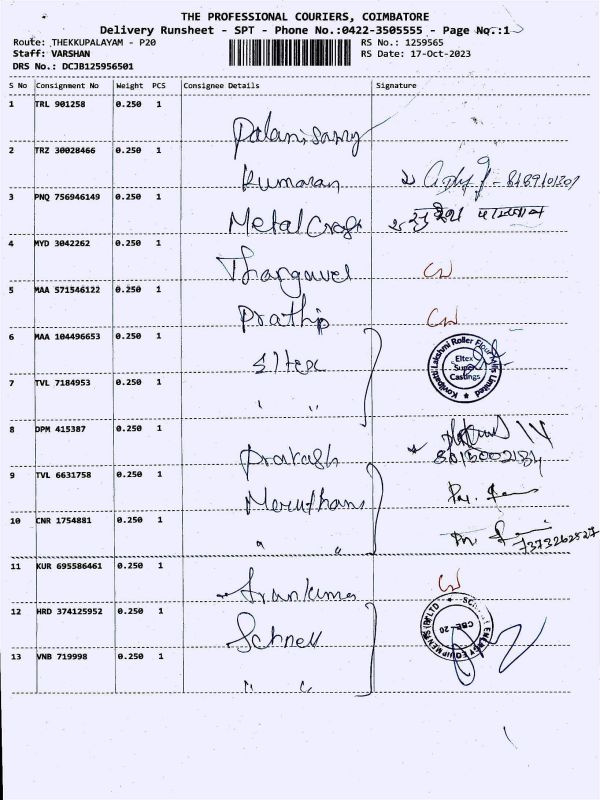 THE PROFESSIONAL COURIERS, COIMBATORE
Delivery Runsheet - SPT - Phone No.:0422-3505555 - Page No.:1
Route: THEKKUPALAYAM - P20
RS No.: 1259565
Staff: VARSHAN
RS Date: 17-Oct-2023
DRS No.: DCJB125956501
S No Consignment No Weight PCS Consignee Details Signature
1 TRL 901258 0.250 1
Palanisamy
2 TRZ 30028466 0.250 1
Kumaran
3 PNQ 756946149 0.250 1
Metal Craft
4 MYD 3042262 0.250 1
Thangavel CW
5 MAA 571546122 0.250 1
Prathip CW
6 MAA 104496653 0.250 1
Eltex
Kovilpatti Lakshmi Roller Flour Mills Limited
Eltex
Super
Castings
7 TVL 7184953 0.250 1
" "
8 DPM 415387 0.250 1
Prakash
9 TVL 6631758 0.250 1
10 CNR 1754881 0.250 1
" "
7373262527
11 KUR 695586461 0.250 1
CW
12 HRD 374125952 0.250 1
Schnell
ENERGY EQUIPMENTS (P) LTD
CBE-20
13 VNB 719998 0.250 1
" "